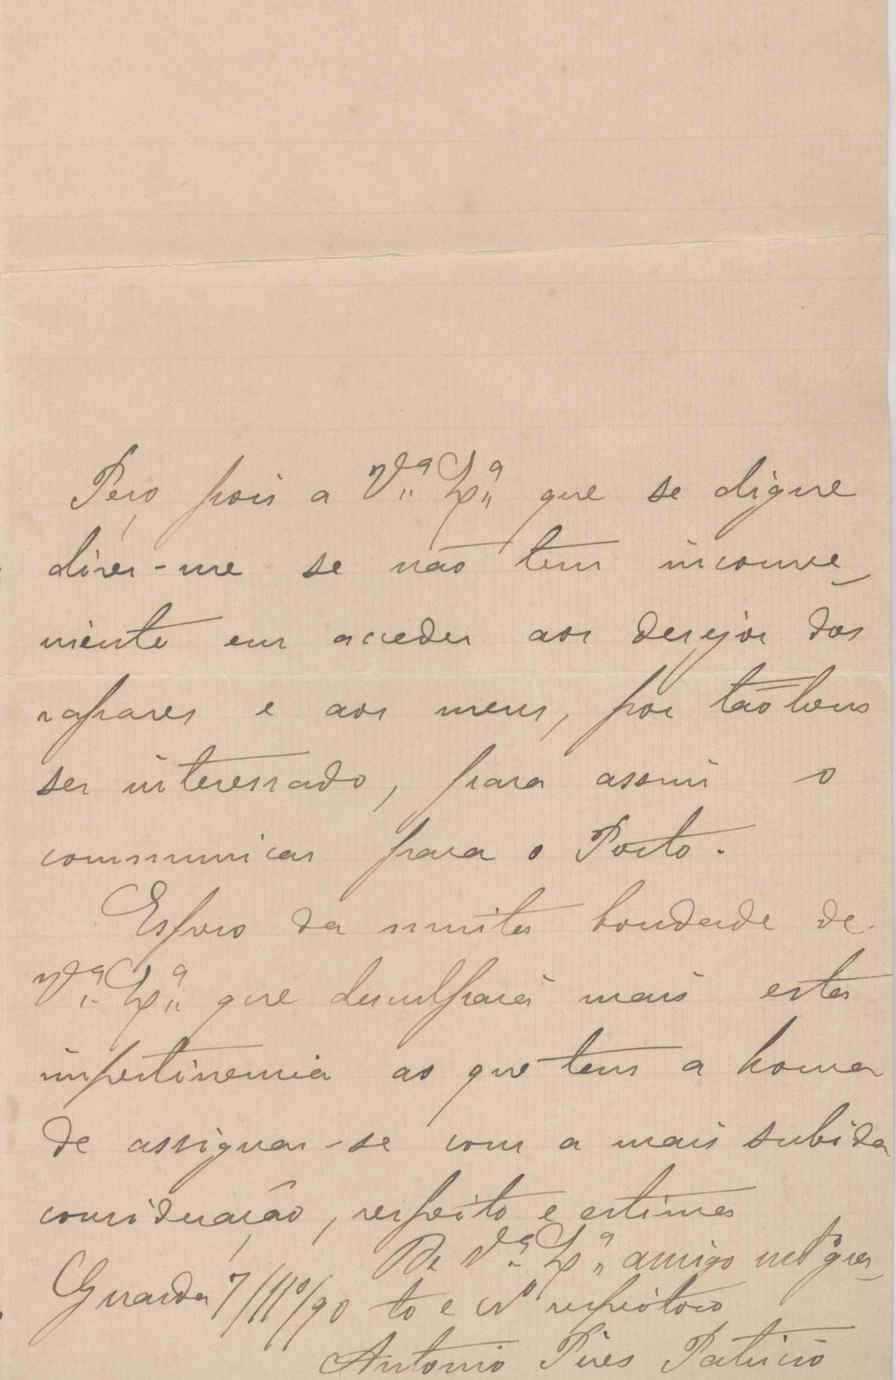 Peço pois a V.ª Ex.ª que se digne
dizer-me se não tem inconve-
niente em acceder aos desejos dos
rapazes e aos meus, por tãobem
ser interessado, para assim o
communicar para o Porto.
Espero da muita bondade de
V.ª Ex.ª que desculpará mais esta
impertinencia ao que tem a honra
de assignar-se com a mais subida
consideração, respeito e estima
De V.ª Ex.ª amigo
Guarda 7/11º/90 to e cr.º
Antonio Pires Patricio